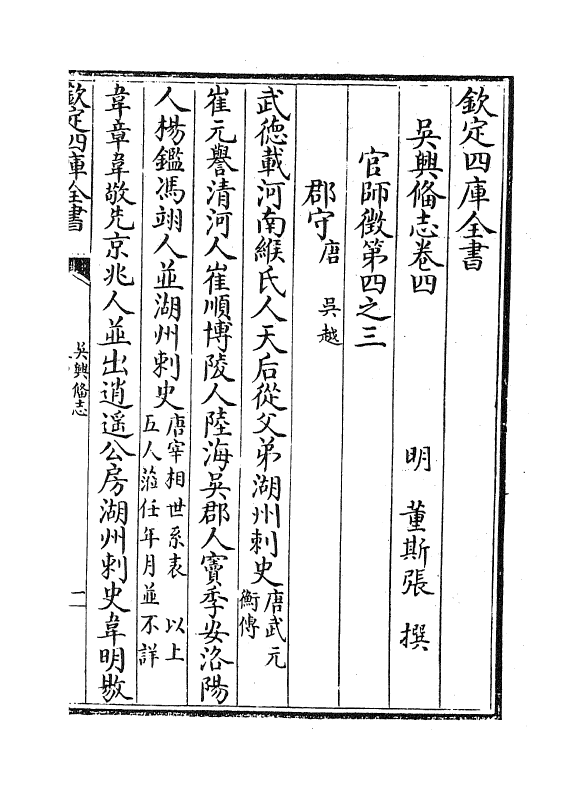 欽定四庫全書
吳興備志卷四
明 董斯張 撰
官師徵第四之三
郡守唐 吳越
武德載河南緱氏人天后從父弟湖州刺史唐武元衡傳
崔元譽清河人崔順博陵人陸海吳郡人竇季安洛陽
人楊鑑馮翊人並湖州刺史唐宰相世系表 以上五人蒞任年月並不詳
韋章韋敬先京兆人並出逍遙公房湖州刺史韋明敭
欽定四庫全書
吳興備志